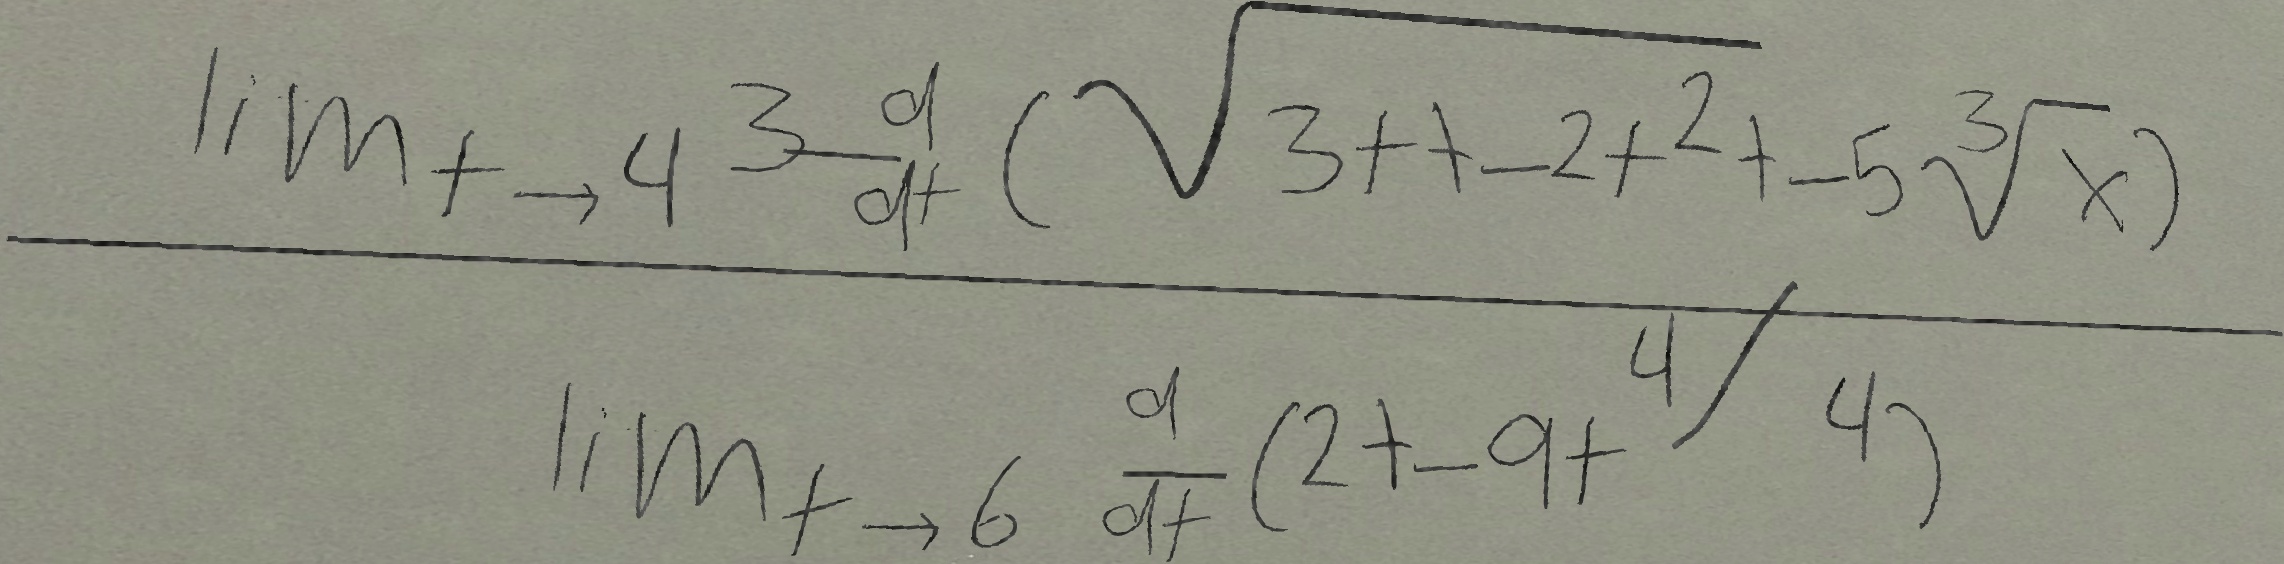 lim t→4 3 d/dt (√(3t+-2t²)+-5∛x)
lim t→6 d/dt (2t-9t⁴/4)